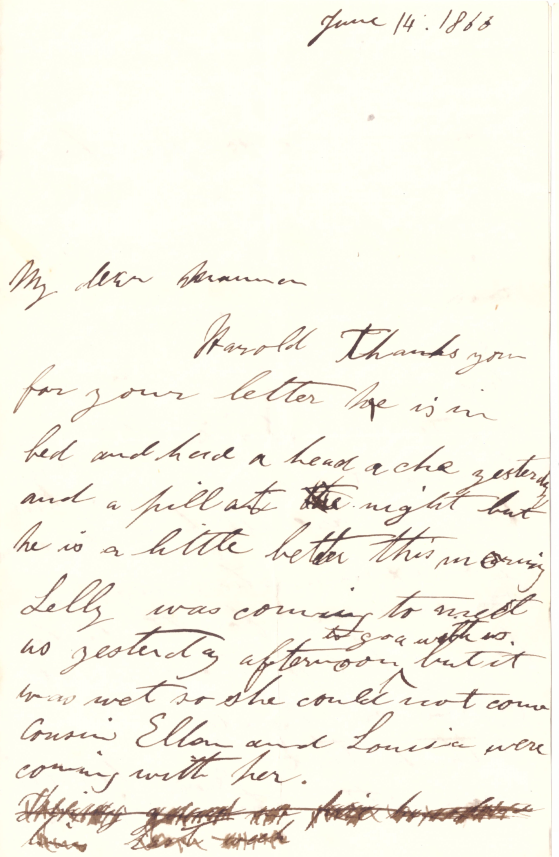 June 14. 1863
My dear Mamma
Harold Thanks you
for your letter he is in
bed and had a head ache yesterday
and a pill at the night but
he is a little better this morning
Lelly was coming to meet
to go a with us.
us yesterday afternoon, but it
was wet so she could not come
cousin Ellen and Louisa were
coming with her.